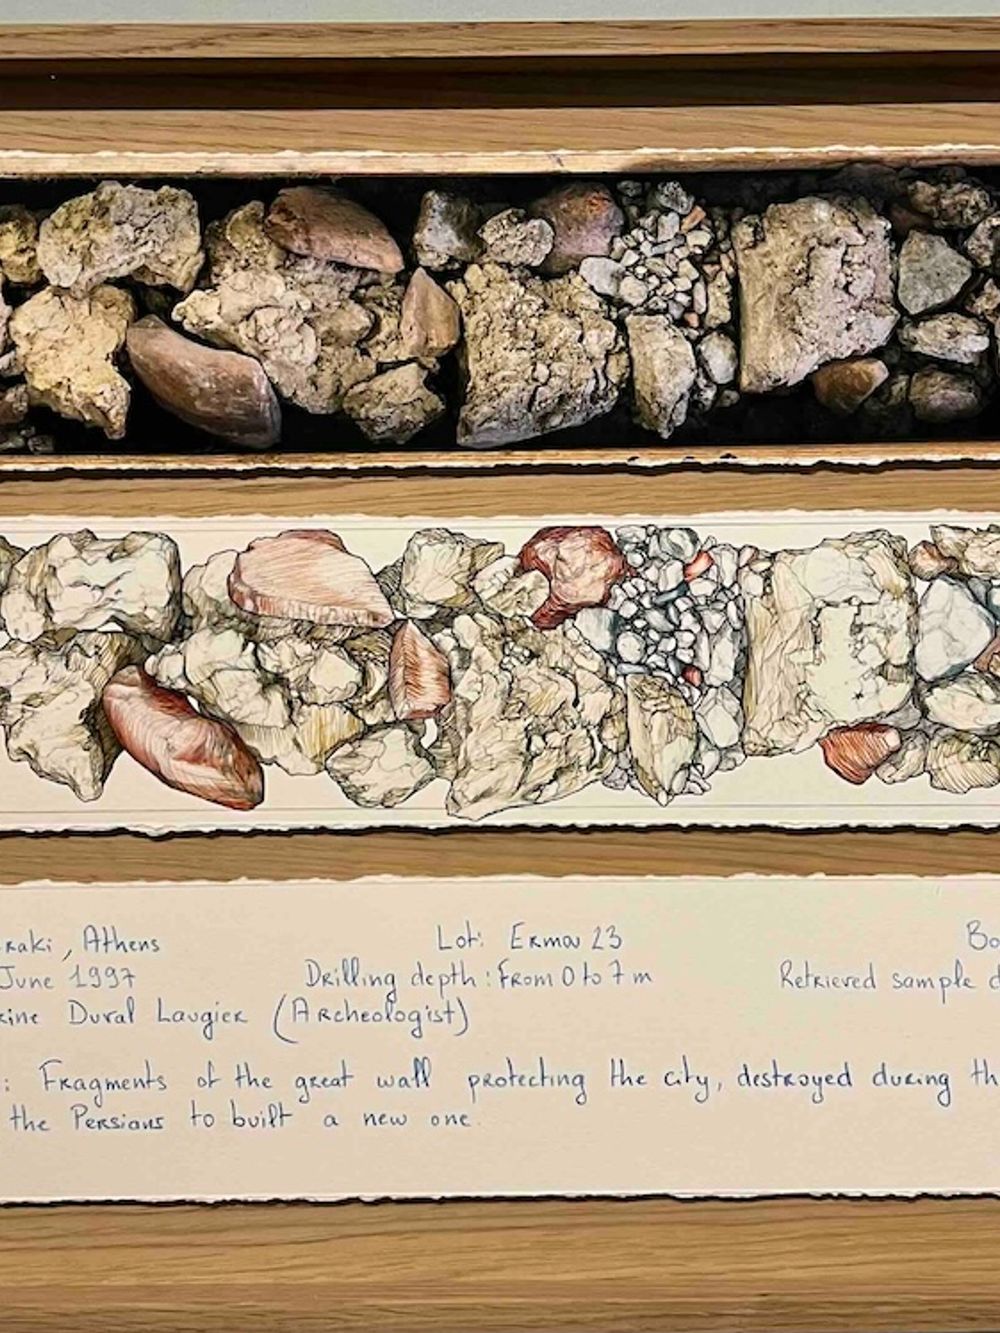 raki, Athens Lot: Ermou 23 Bo
June 1997 Drilling depth: From 0 to 7 m Retrieved sample d
rine Duval Laugier (Archeologist)
: Fragments of the great wall protecting the city, destroyed during th
the Persians to built a new one.